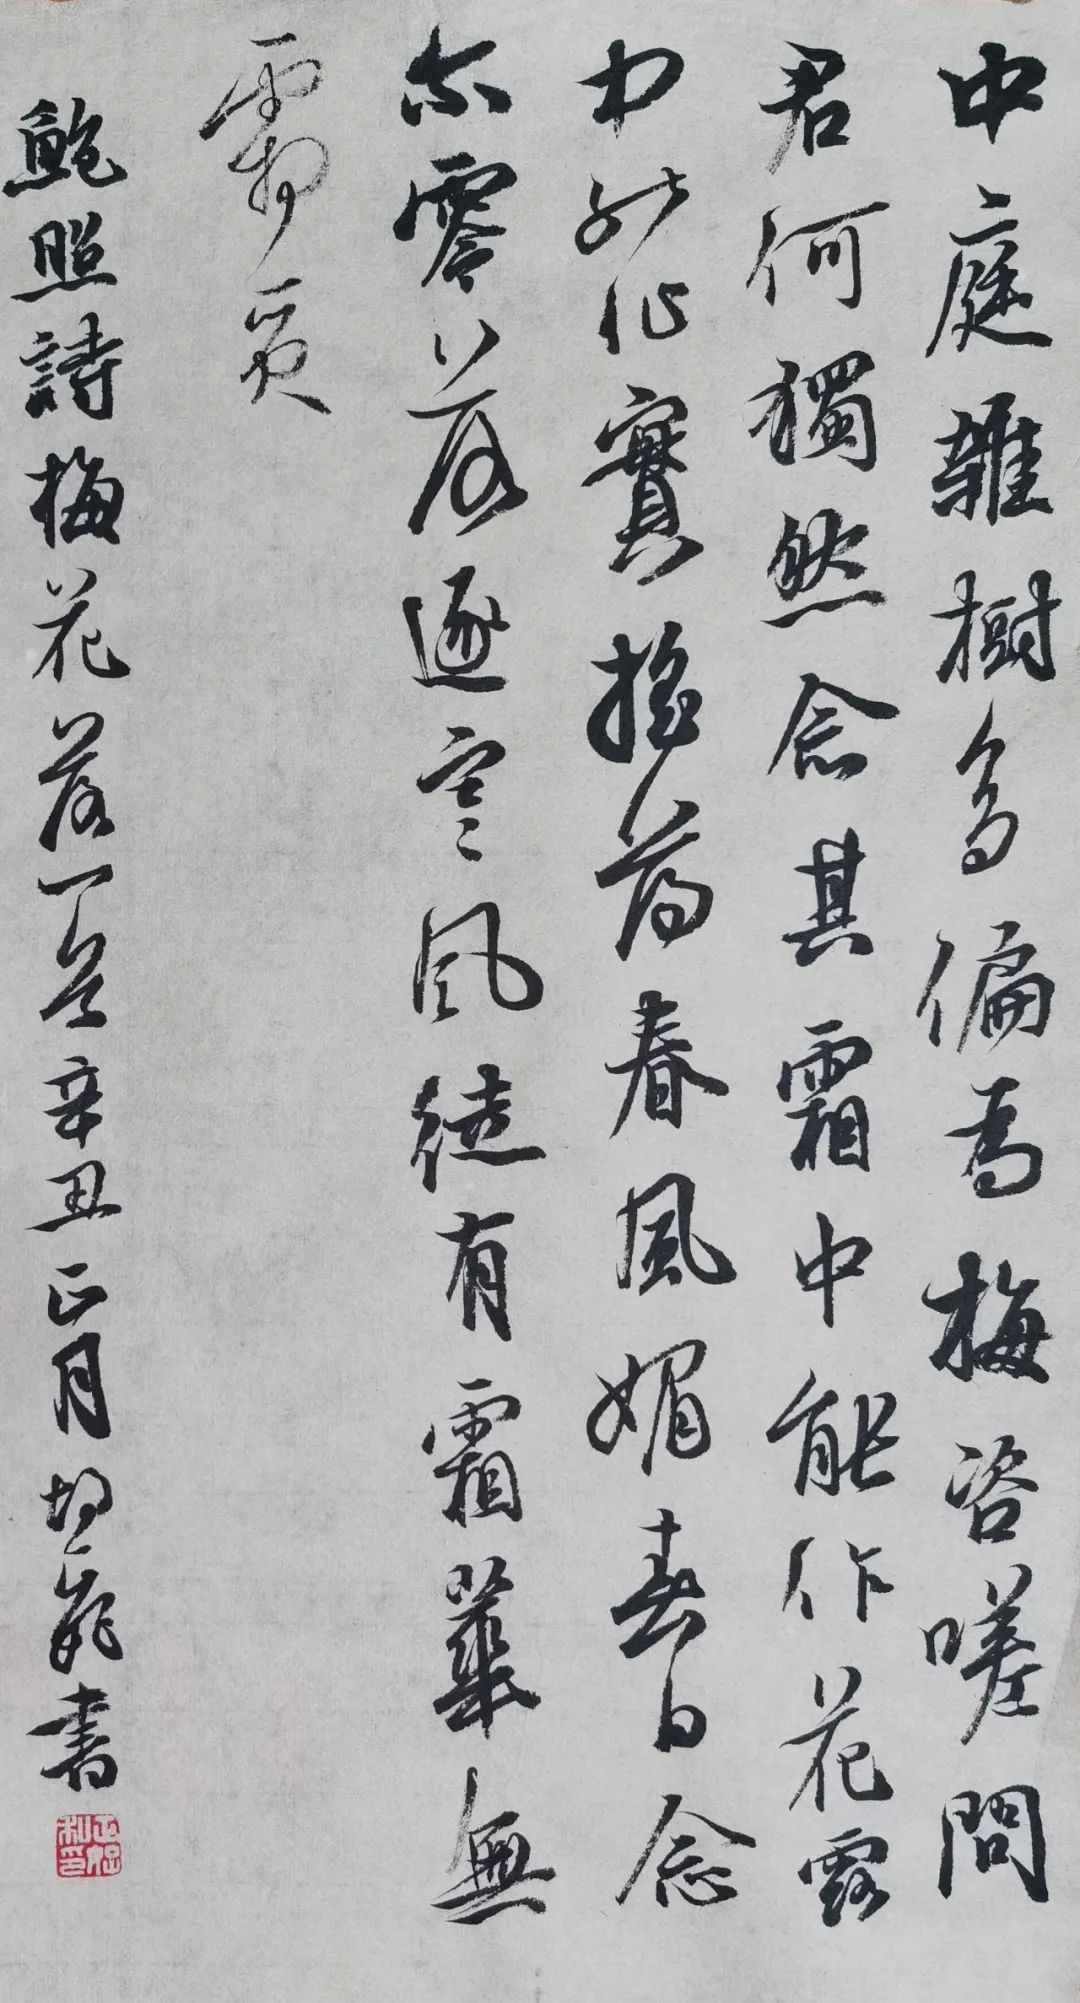 中庭雜樹多偏為梅咨嗟問
君何獨然念其霜中能作花露
中能作實搖蕩春風媚春日念
尔零落逐寒風徒有霜華無
霜質
鮑照詩梅花落一首辛丑正月書